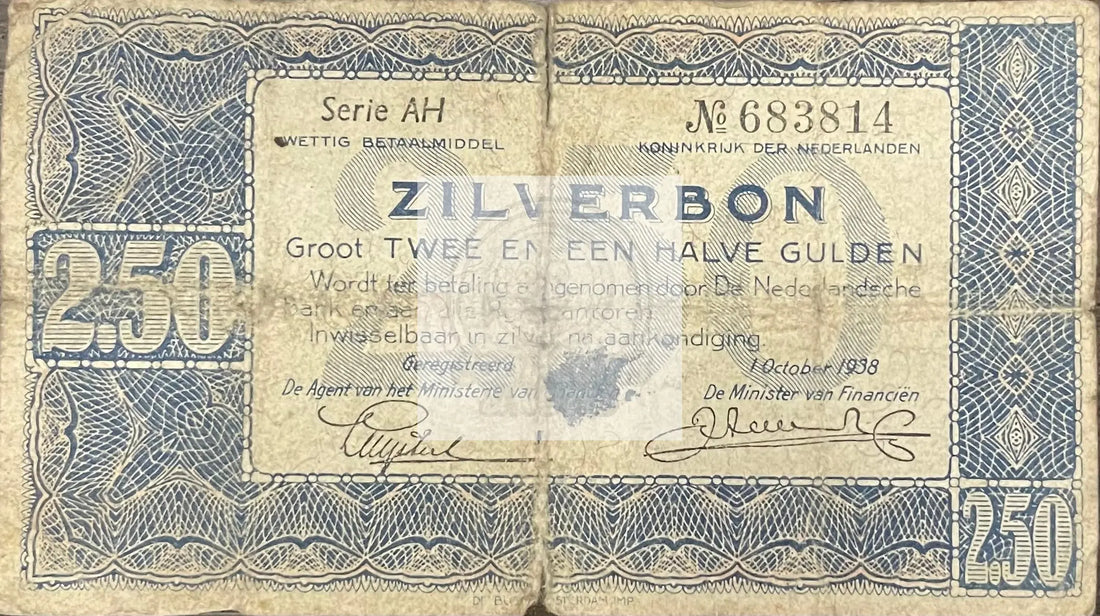 Serie AH
№ 683814
WETTIG BETAALMIDDEL
KONINKRIJK DER NEDERLANDEN
250
ZILVERBON
Groot TWEE EN EEN HALVE GULDEN
2.50
Wordt ter betaling aangenomen door De Nederlandsche
bank en aan alle Rijkskantoren
Inwisselbaar in zilver na aankondiging.
Geregistreerd
1 October 1938
De Agent van het Ministerie van
De Minister van Financiën
2.50
IMP.